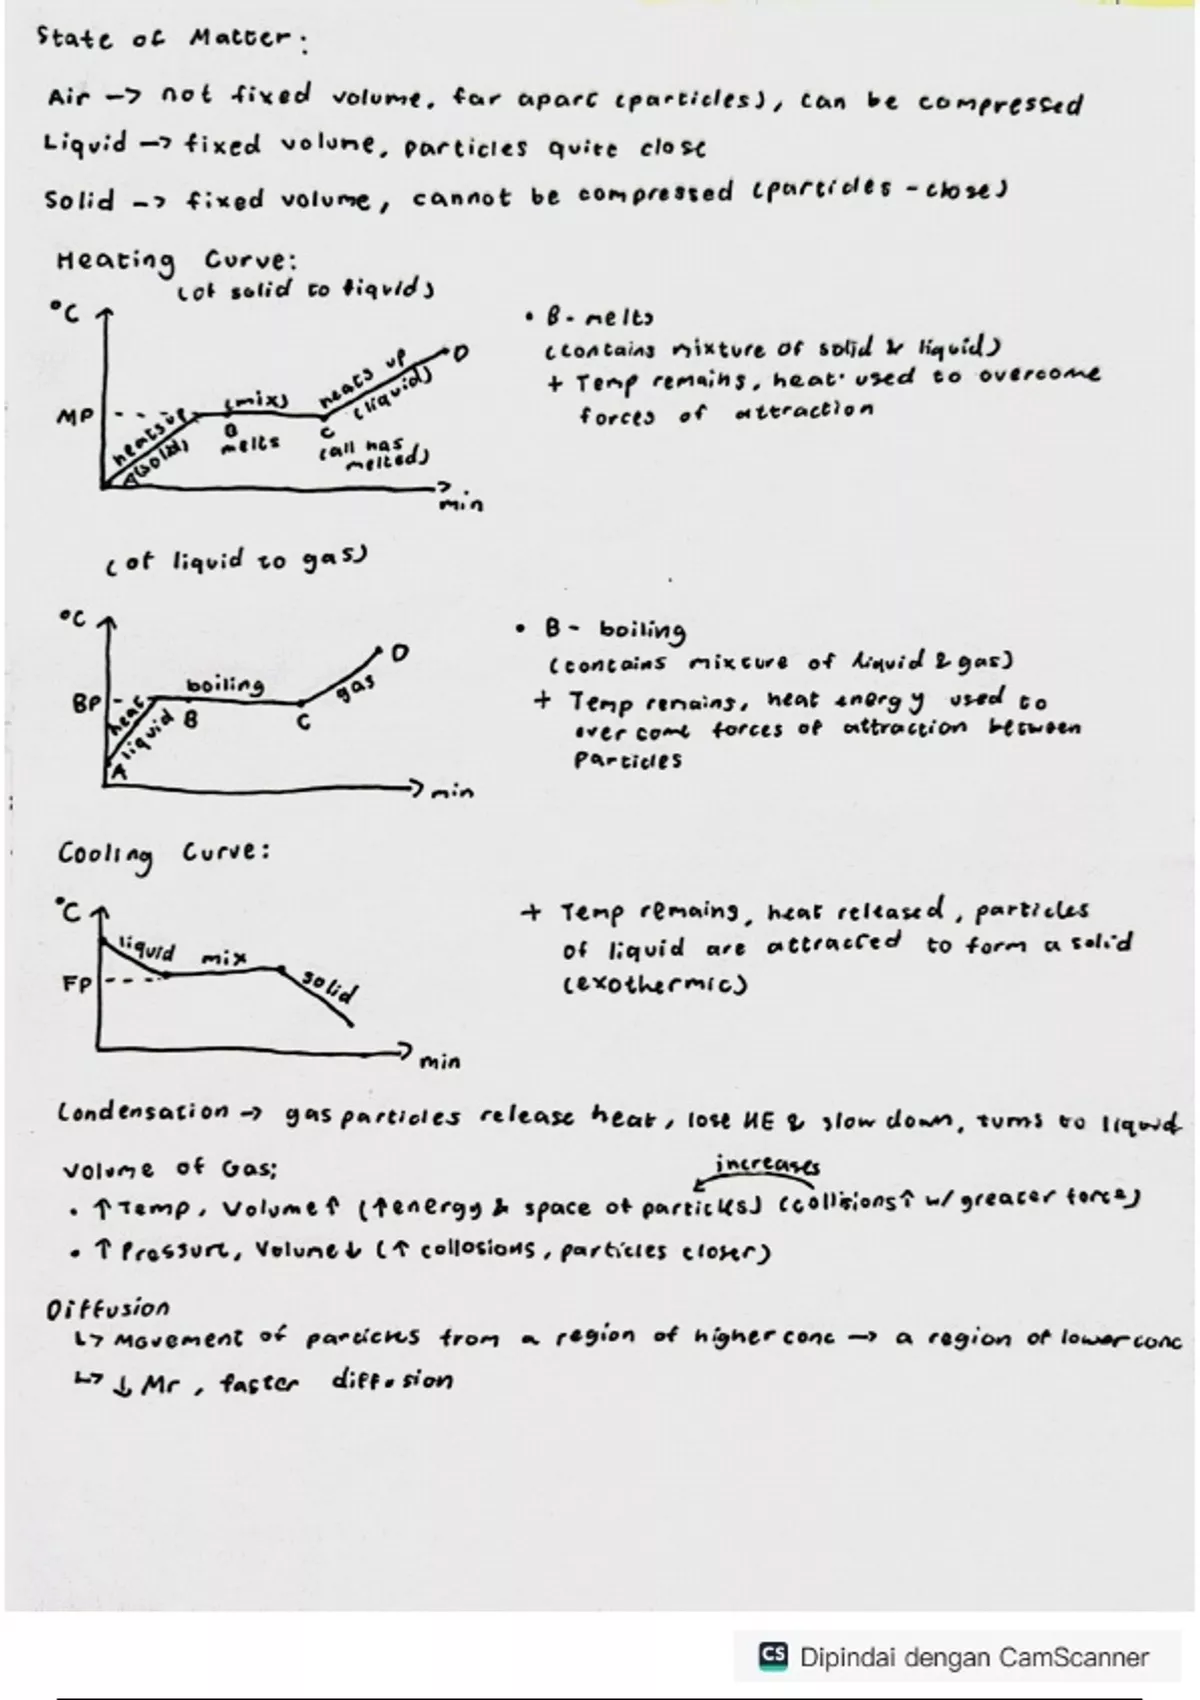 State of Matter:
Air -> not fixed volume, far apart (particles), can be compressed
Liquid -> fixed volume, particles quite close
Solid -> fixed volume, cannot be compressed (particles - close)
Heating Curve:
(of solid to liquid)
°C
MP
heats up
A (solid)
(mix)
B
melts
C
(all has melted)
heats up
(liquid)
D
min
• B - melts
(contains mixture of solid & liquid)
+ Temp remains, heat used to overcome
forces of attraction
(of liquid to gas)
°C
BP
heat
liquid
A
boiling
B
C
gas
D
min
• B - boiling
(contains mixture of liquid & gas)
+ Temp remains, heat energy used to
overcome forces of attraction between
Particles
Cooling Curve:
°C
FP
liquid
mix
solid
min
+ Temp remains, heat released, particles
of liquid are attracted to form a solid
(exothermic)
Condensation -> gas particles release heat, lose KE & slow down, turns to liquid
Volume of Gas;
increases
• ↑ Temp, Volume ↑ (↑ energy & space of particles) (collisions ↑ w/ greater force)
• ↑ Pressure, Volume ↓ (↑ collosions, particles closer)
Diffusion
↳ Movement of particles from a region of higher conc -> a region of lower conc
↳ ↓ Mr, faster diffusion
CS Dipindai dengan CamScanner